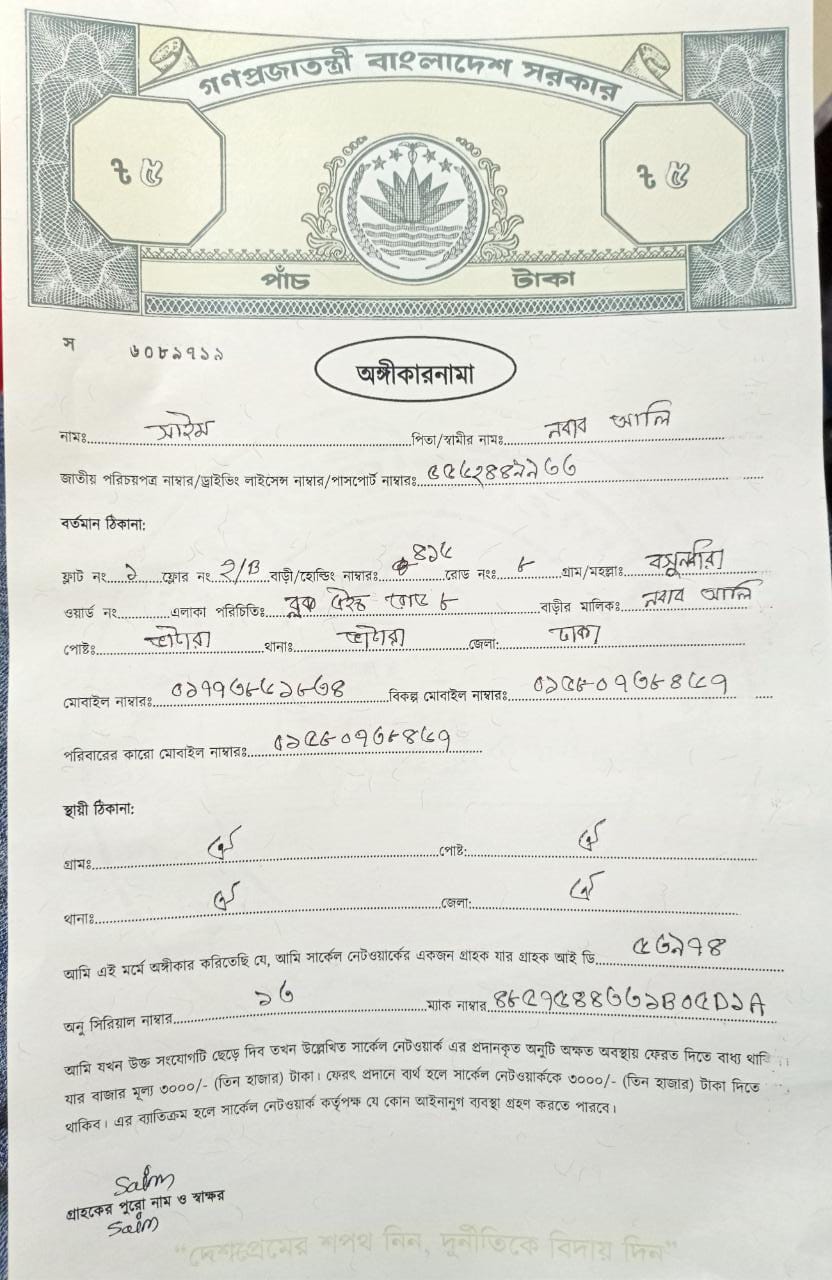 গণপ্রজাতন্ত্রী বাংলাদেশ সরকার
৳ ৫ ৳ ৫
পাঁচ টাকা
স ৬০৮৯৭১৯
অঙ্গীকারনামা
নামঃ সাইম পিতা/স্বামীর নামঃ নবাব আলি
জাতীয় পরিচয়পত্র নাম্বার/ড্রাইভিং লাইসেন্স নাম্বার/পাসপোর্ট নাম্বারঃ
বর্তমান ঠিকানা:
ফ্লাট নং ১ ফ্লোর নং ২/B বাড়ী/হোল্ডিং নাম্বারঃ ৪১৫ রোড নংঃ ৮ গ্রাম/মহল্লাঃ বসুন্ধরা
ওয়ার্ড নং এলাকা পরিচিতিঃ ব্লক রোড ৮ বাড়ীর মালিকঃ নবাব আলি
পোষ্টঃ ভাটারা থানাঃ ভাটারা জেলা: ঢাকা
মোবাইল নাম্বারঃ বিকল্প মোবাইল নাম্বারঃ ০১৫৮০৭৩৮৪৫৭
পরিবারের কারো মোবাইল নাম্বারঃ ০১৫৮০৭৩৮৪৫৭
স্থায়ী ঠিকানা:
গ্রামঃ ঐ পোষ্ট: ঐ
থানাঃ ঐ জেলা: ঐ
আমি এই মর্মে অঙ্গীকার করিতেছি যে, আমি সার্কেল নেটওয়ার্কের একজন গ্রাহক যার গ্রাহক আই ডি ৫৩৯৭৪
অনু সিরিয়াল নাম্বার ১৩ ম্যাক নাম্বার
আমি যখন উক্ত সংযোগটি ছেড়ে দিব তখন উল্লেখিত সার্কেল নেটওয়ার্ক এর প্রদানকৃত অনুটি অক্ষত অবস্থায় ফেরত দিতে বাধ্য থাকিব।
যার বাজার মূল্য ৩০০০/- (তিন হাজার) টাকা। ফেরৎ প্রদানে ব্যর্থ হলে সার্কেল নেটওয়ার্ককে ৩০০০/- (তিন হাজার) টাকা দিতে
থাকিব। এর ব্যাতিক্রম হলে সার্কেল নেটওয়ার্ক কর্তৃপক্ষ যে কোন আইনানুগ ব্যবস্থা গ্রহণ করতে পারবে।
Saim
গ্রাহকের পুরো নাম ও স্বাক্ষর
Saim
“দেশপ্রেমের শপথ নিন, দুর্নীতিকে বিদায় দিন”